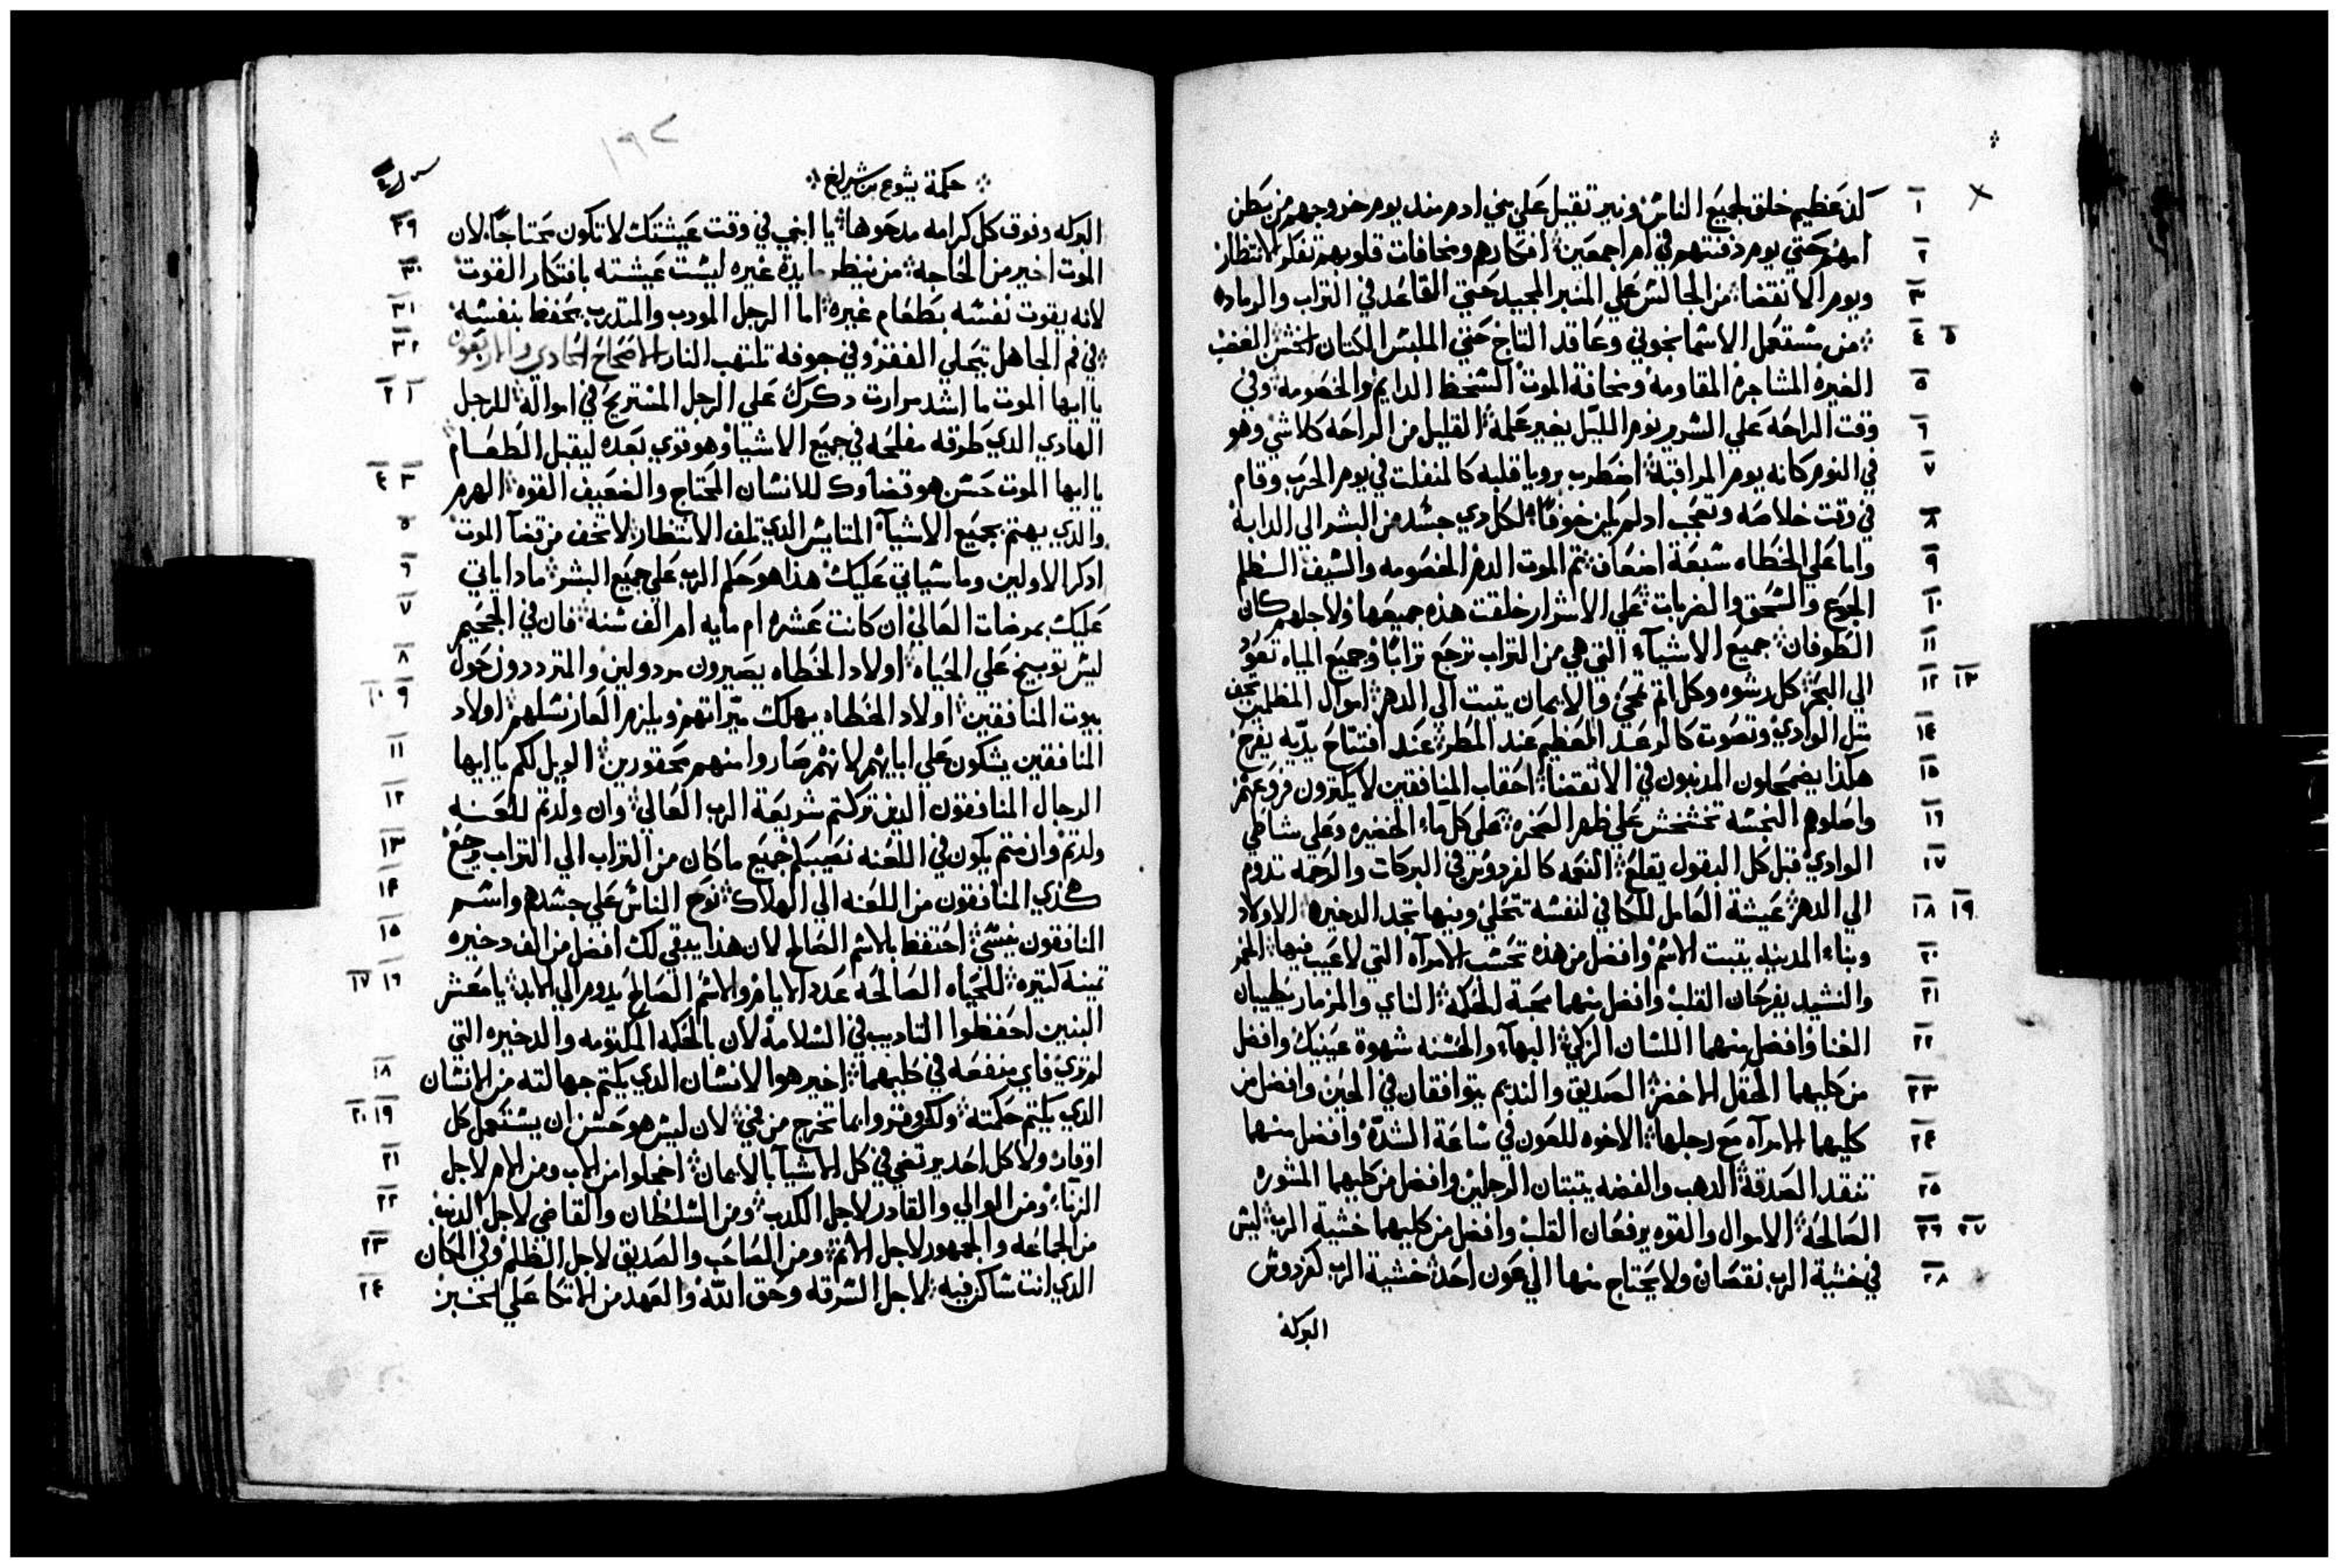 كد عظيم خلق لجميع الناس ونير تقيل علي بني ادم مند يوم خروجهم من بطن
امهم حتي يوم دفنتهم في ام اجمعين افكارهم ومخافات قلوبهم تفكر الانتظار
ويوم الانقضا من الجالس علي المنبر المجيد حتي القاعد في التراب والرماد
من يستعمل الاسمانجوني وعاقد التاج حتي الملبس الكتان الخشن الغضب
الغيره المشاجره المقاومه ومخافة الموت السخط الدايم والخصومه وفي
وقت الراحه علي السرير نوم الليل يغير علمه القليل من الراحه كلاشي وهو
في النوم كانه يوم المراقبه اضطرب برويا قلبه كالمنفلت في يوم الحرب وقام
في وقت خلاصه وتعجب اد لم يكن خوفا لكل دي جسد من البشر الي الدابه
واما علي الخطاه سبعة اضعاف تم الموت الدم الخصومه والسيف الظلم
الجوع والسحق والضربات علي الاشرار خلقت هذه جميعها ولاجلهم كان
الطوفان جميع الاشيآء التي هي من التراب ترجع ترابا وجميع المياه تعود
الي البحر كل رشوه وكل اتم تمحي والايمان يتبت الي الدهر اموال المظلمين تجف
متل الوادي وتصوت كالرعد العظيم عند المطر عند افتتاح يديه يفرح
هكذا يضمحلون المدنبون في الانقضا احقاب المنافقين لا يكترون فروعهم
واصلوهم النجسه تخشخش علي ظهر الصخره علي كل مآء الخضيره وعلي شاطي
الوادي قبل كل البقول يقلع النعمه كالفردوس في البركات والرحمه تدوم
الي الدهر عيشة العامل المكافي لنفسه تتحلي وبها تجد الدخيره الاولاد
وبناء المدينه يتبت الاسم وافضل من هذه تحسب الامرآه التي لا عيب فيها الخمر
والنشيد يفرحان القلب وافضل منهما محبة الحكمه الناي والمزمار يطيبان
الغنا وافضل منهما اللسان الزكي البهآء والحسنه شهوة عينيك وافضل
من كليهما الحقل الاخضر الصديق والنديم يتوافقان في الحين وافضل من
كليهما الامرآه مع رجلها الاخوه للعون في ساعة الشده وافضل منهما
تنقد الصدقه الدهب والفضه يتبتان الرجلين وافضل من كليهما المشوره
الصالحه الاموال والقوه يرفعان القلب وافضل من كليهما خشية الرب ليس
في خشية الرب نقصان ولا يحتاج منها الي عون احد خشية الرب كفردوس
البركه
١٩٢
حكمة يشوع بن شيراخ
البركه وفوق كل كرامه مدحوها يا ابني في وقت عيشتك لا تكون محتاجا لان
الموت اخير من الحاجه من ينظر مايدة غيره ليست عيشته بافتكار القوت
لانه يقوت نفسه بطعام غيره اما الرجل المودب والمتدرب يحفظ بنفسه
في فم الجاهل يتحلي الفقر وفي جوفه تلتهب النار الاصحاح الحادي والاربعون
يا ايها الموت ما اشد مرارت دكرك علي الرجل المستريح في امواله للرجل
الهادي الدي طرقه مفلحه في جميع الاشيا وهو قوي بعده ليقبل الطعام
يا ايها الموت حسن هو قضاوك للانسان المحتاج والضعيف القوه الهرم
والدي يهتم بجميع الاشيآء المتايس الدي تلف الانتظار لا تخف من قضآ الموت
ادكر الاولين وما سياتي عليك هذا هو حكم الرب علي جميع البشر مادا ياتي
عليك بمرضات العالي ان كانت عشره ام مايه ام الف سنه فان في الجحيم
ليس توبيخ علي الحياه اولاد الخطاه يصيرون مردولين والمترددون حول
بيوت المنافقين اولاد الخطاه يهلك ميراتهم ويلزم العار نسلهم اولاد
المنافقين يشكون علي ابايهم لانهم صاروا منهم محقورين الويل لكم يا ايها
الرجال المنافقون الدين تركتم شريعة الرب العالي وان ولدتم للعنه
ولدتم وان متم يكون في اللعنه نصيبكم جميع ما كان من التراب الي التراب يرجع
هكذي المنافقون من اللعنه الي الهلاك نوح الناس علي جسدهم واسم
المنافقون ينسي احتفظ بالاسم الصالح لان هذا يبقي لك افضل من الف دخيره
تمينه كتيره للحياه الصالحه عدد الايام والاسم الصالح يدوم الي الابد يا معشر
البنين احفظوا التاديب في السلامه لان بالحكمه المكتومه والدخيره التي
لم تري فاي منفعه في كليهما اخير هوا الانسان الدي يكتم جهالته من الانسان
الدي يكتم حكمته ولكن وقروا بما تخرج من فمي لان ليس هو حسن ان يستعمل كل
اوقار ولا كل احد يرتضي في كل الاشيآ بالايمان اخجلوا من الاب ومن الام لاجل
الزنآء ومن الوالي والقادر لاجل الكدب ومن السلطان والقاضي لاجل الدنب
من الجماعه والجمهور لاجل الاتم ومن الصاحب والصديق لاجل الظلم وفي المكان
الدي انت ساكن فيه لاجل السرقه وحق الله والعهد من الاتكا علي الخبز